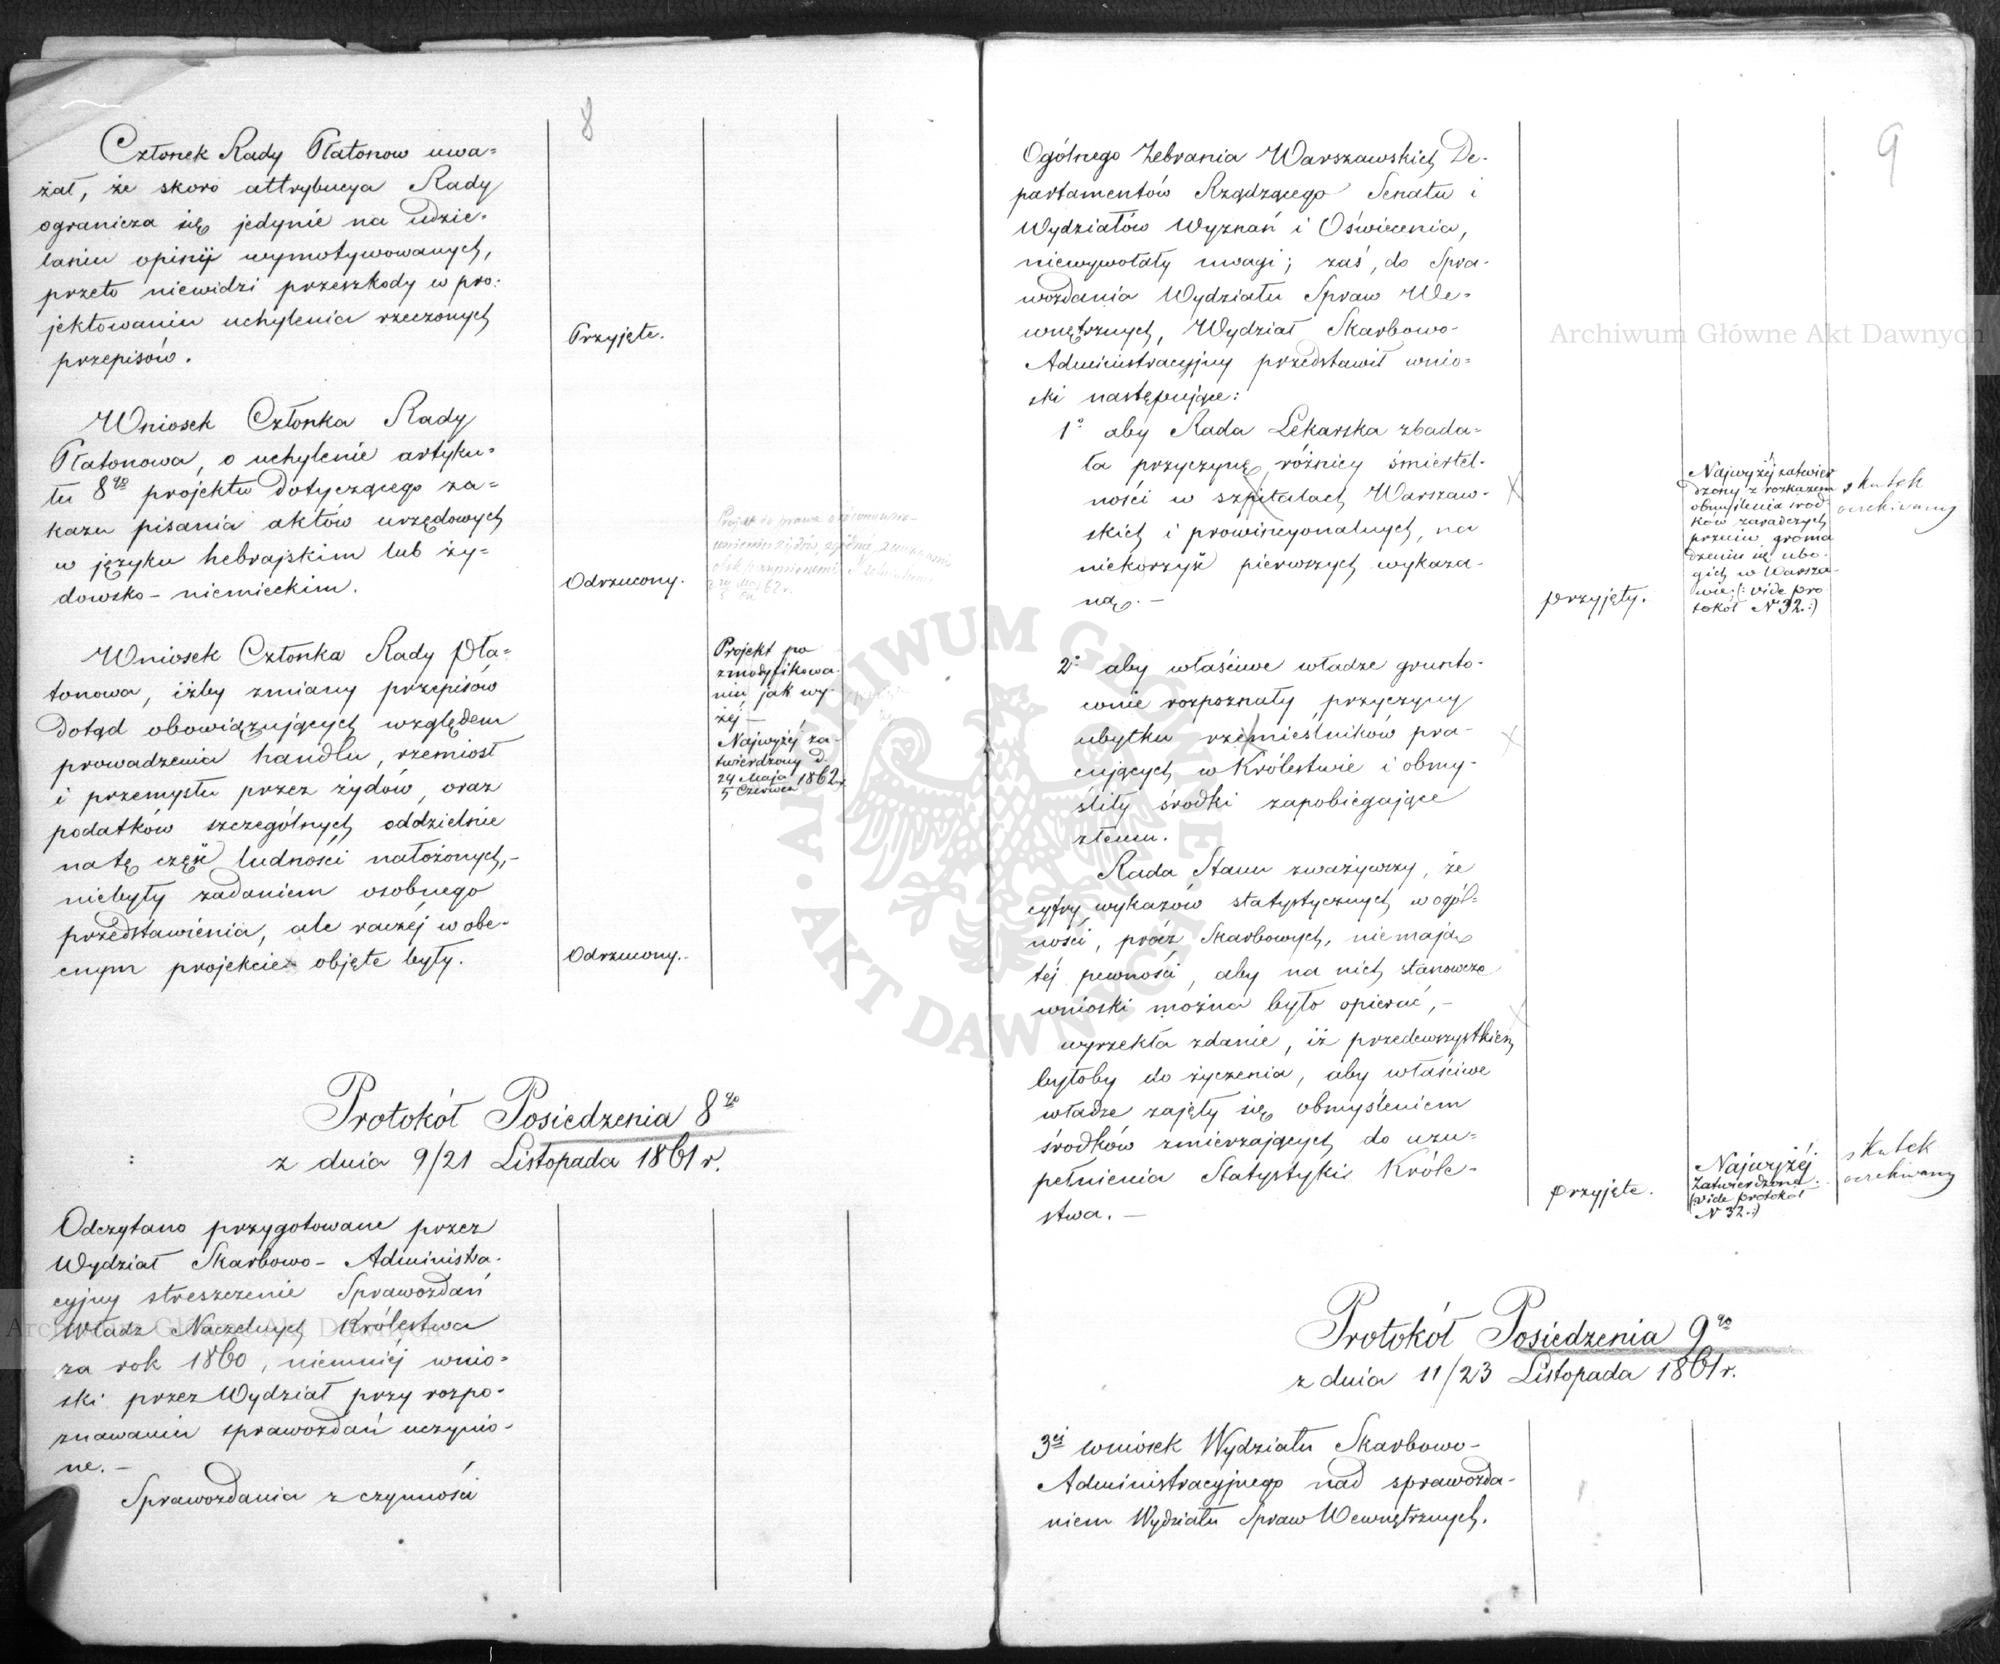 8
Członek Rady Płatonow uwa=
żał, że skoro attrybucya Rady
ogranicza się jedynie na udzie-
laniu opinij wymotywowanych,
przeto niewidzi przeszkody w pro:
jektowaniu uchylenia rzeczonych
przepisów.
Przyjęte.
Wniosek Członka Rady
Płatonowa, o uchylenie artyku=
łu 8go projektu dotyczącego za=
kazu pisania aktów urzędowych
w języku hebrajskim lub ży=
dowsko-niemieckim.
Odrzucony.
Wniosek Członka Rady Pła=
tonowa, iżby zmiany przepisów
dotąd obowiązujących względem
prowadzenia handlu, rzemiosł
i przemysłu przez żydów, oraz
podatków szczególnych oddzielnie
na tę część ludności nałożonych,-
niebyły zadaniem osobnego
przedstawienia, ale raczéj w obe-
cnym projekcie objęte były.
Odrzucony.-
Projekt po
zmodyfikowa-
niu, jak wy-
żéj -
Najwyżéj za-
twierdzony d.
24 Maja
5 Czerwca 1862 r.
Protokół Posiedzenia 8go
z dnia 9/21 Listopada 1861 r.
Odczytano przygotowane przez
Wydział Skarbowo-Administra-
cyjny streszczenie Sprawozdań
Władz Naczelnych Królestwa
za rok 1860, niemniéj wnio=
ski przez Wydział przy rozpo-
znawaniu sprawozdań uczynio-
ne.-
Sprawozdania z czynności
9
Ogólnego Zebrania Warszawskich De-
partamentów Rządzącego Senatu i
Wydziałów Wyznań i Oświecenia,
niewywołały uwagi; zaś, do Spra-
wozdania Wydziału Spraw We=
wnętrznych, Wydział Skarbowo-
Administracyjny przedstawił wnio=
ski następujące:
1o aby Rada Lekarska zbada=
ła przyczynę różnicy śmiertel-
ności w szpitalach Warszaw-
skich i prowincyonalnych, na
niekorzyść pierwszych wykaza-
ną.-
przyjęty.
Najwyżéj zatwier
dzony z rozkazem
obmyślenia środ
ków zaradczych
przeciw groma
dzeniu się ubo-
gich w Warsza-
wie; (: vide pro
tokół N 32.:)
skutek
archiwany
2o aby właściwe władze grunto-
wnie rozpoznały przyczyny
ubytku rzemieślników pra-
cujących w Królestwie i obmy-
śliły środki zapobiegające
złemu.
Rada Stanu zważywszy, że
cyfry wykazów statystycznych w ogól-
ności, prócz Skarbowych, niemają
téj pewności, aby na nich stanowcze
wnioski można było opierać,-
wyrzekła zdanie, iż przedewszystkiem
byłoby do życzenia, aby właściwe
władze zajęły się obmyśleniem
środków zmierzających do uzu=
pełnienia Statystyki Króle-
stwa.-
przyjęte.
Najwyżéj
Zatwierdzone.
(vide protokół
N 32.:)
skutek
archiwany
Protokół Posiedzenia 9go
z dnia 11/23 Listopada 1861 r.
3ci wniosek Wydziału Skarbowo-
Administracyjnego nad sprawozda-
niem Wydziału Spraw Wewnętrznych.
Archiwum Główne Akt Dawnych
Archiwum Główne Akt Dawnych
ARCHIWUM GŁÓWNE AKT DAWNYCH